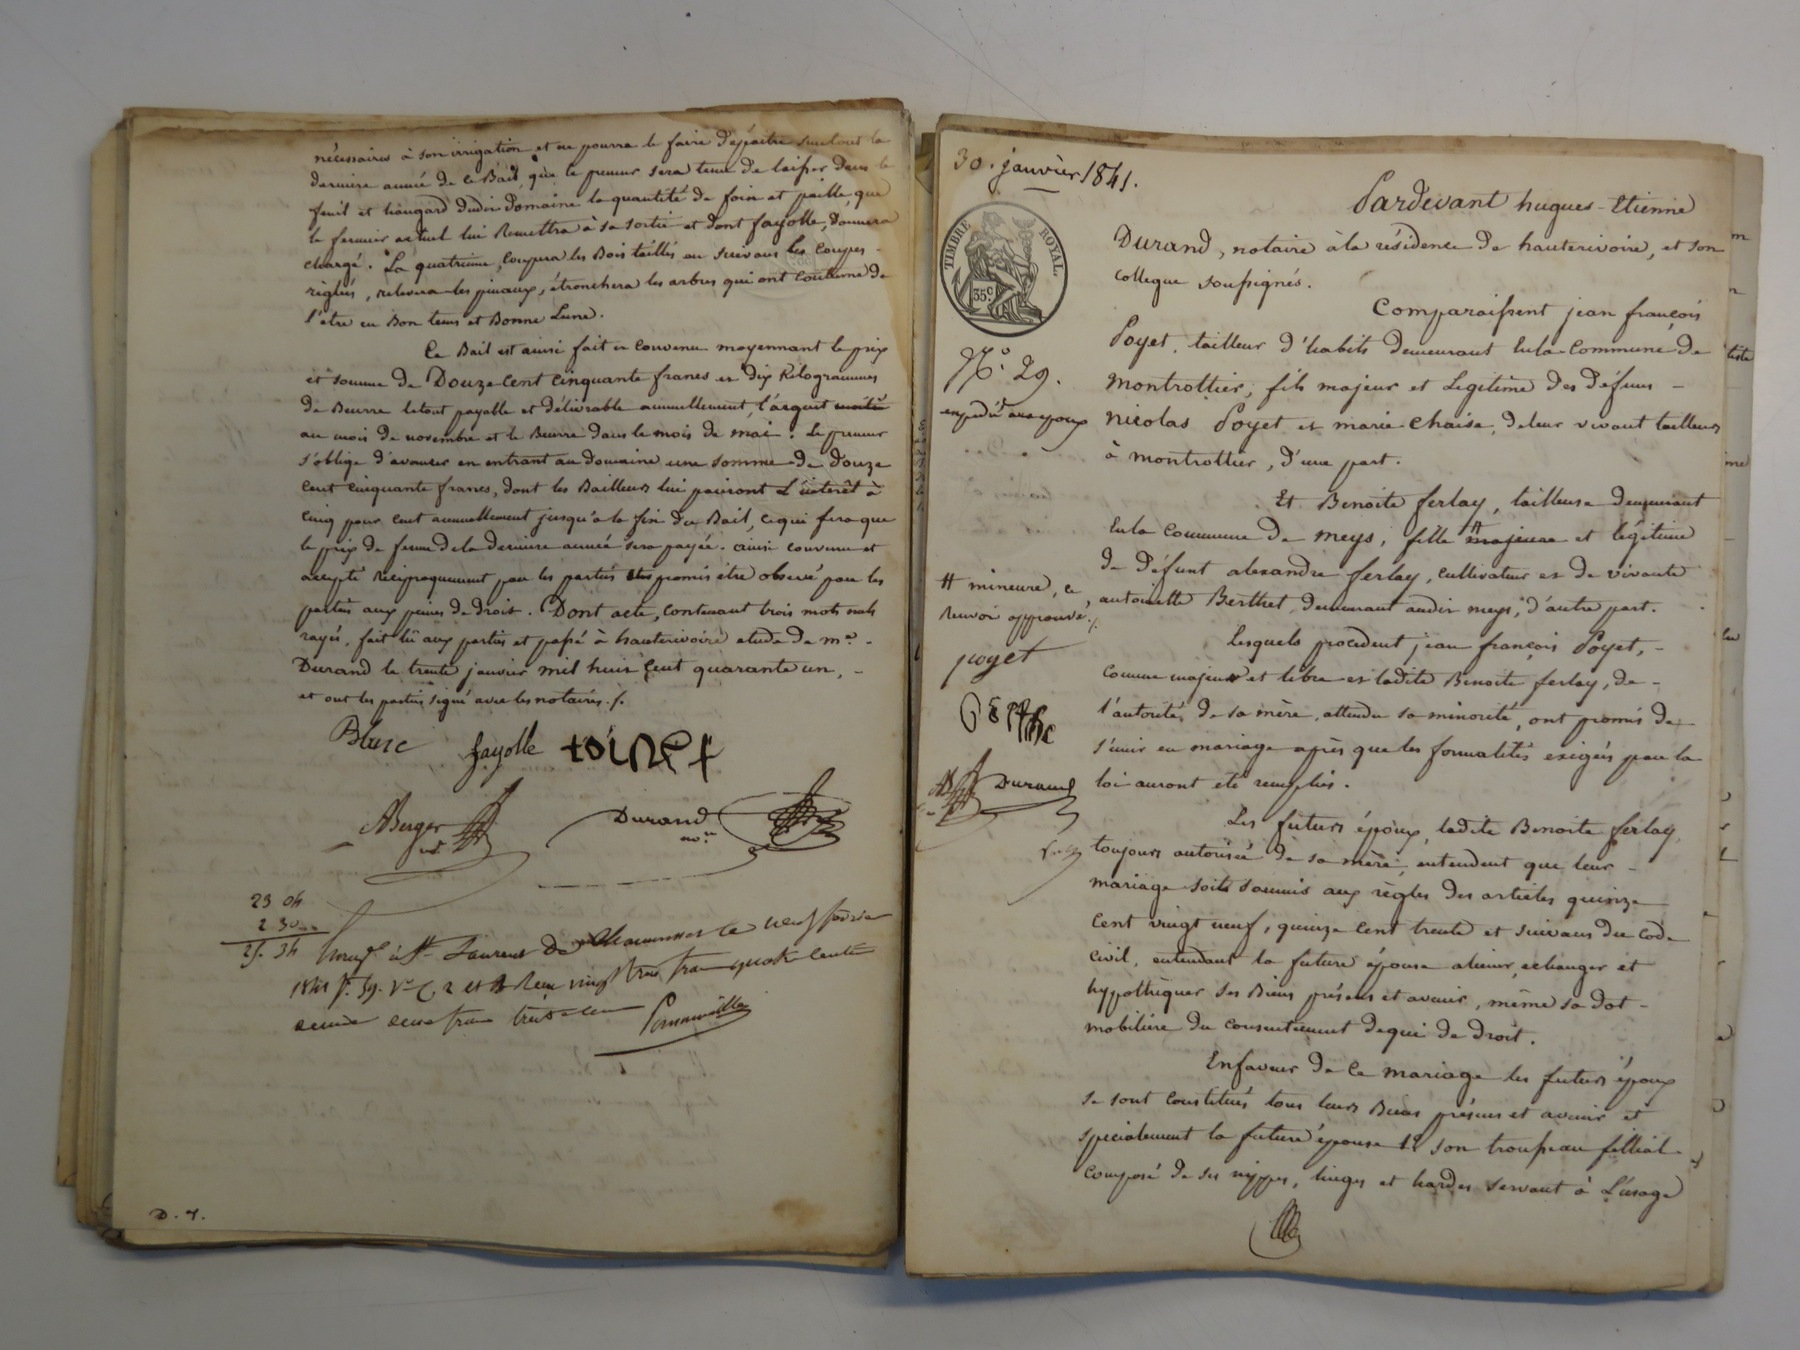 nécessaires à son irrigation et ne pourra le faire dépaitre surtout la
derniere année de ce Bail, que le preneur sera tenu de laisser dans le
fenil et hangard dudit Domaine la quantité de foin et paille, que
le fermier actuel lui Remettra à sa sortie et dont fayolle, demeura
chargé. La quatrieme, coupera les Bois taillés en suivant les coupes
réglées, relevera les pinaux, étronchera les arbres qui ont coutume de
l'etre en Bon tems et Bonne Lune.
Ce Bail est ainsi fait et convenu moyennant le prix
et somme de Douze cent cinquante francs et dix Kilogrammes
de Beurre le tout payable et délivrable annuellement, l'argent moitié
au mois de novembre et le Beurre dans le mois de mai. Le preneur
s'oblige d'avancer en entrant au domaine une somme de douze
cent cinquante francs, dont les Bailleurs lui paieront L'interêt à
cinq pour cent annuellement jusqu'a la fin du Bail, ce qui fera que
le prix de ferme de la derniere année sera payée. ainsi convenu et
accepté réciproquement par les parties promis être observé par les
parties aux peines de droit. Dont acte, contenant trois mots nuls
rayés, fait lû aux parties et passé à hauterivoire etude de me.
Durand le trente janvier mil huit cent quarante un,
et ont les parties signé avec les notaires ./.
Blanc fayolle toinet
ABerger
Durand
nore
23 04
2 30
25. 34 Enregé à St Laurent de Chamousset le neuf février
1841 fo. 59. Vo C. 2 et Reçu vingt trois francs quatre centes
décime deux francs trente cen
D. 7.
30. janvier 1841.
TIMBRE ROYAL.
35 c
No. 29.
expedié aux epoux
Pardevant hugues-Etienne
Durand, notaire à la résidence de hauterivoire, et son
collegue soussignés.
Comparaissent jean françois
Poyet, tailleur d'habits demeurant En la Commune de
montrottier, fils majeur et Legitime des défunts
nicolas Poyet et marie Chaise, de leur vivant tailleurs
à montrottier, d'une part.
Et Benoite ferlay, tailleuse demeurant
En la Commune de meys, fille # majeure et légitime
de défunt alexandre ferlay, cultivateur et de vivante
antoinette Berthet, demeurant audit meys, d'autre part.
# mineure, ce
renvoi approuvé ./.
poyet
Durand
Lesquels procedent jean françois Poyet,
comme majeur et libre et ladite Benoite ferlay, de
l'autorité de sa mère, attendu sa minorité, ont promis de
s'unir en mariage après que les formalités exigées par la
loi auront été remplies.
Les futurs époux, ladite Benoite ferlay,
toujours autorisée de sa mère, entendent que leur
mariage soit soumis aux règles des articles quinze
cent vingt neuf, quinze cent trente et suivans du code
civil, entendant la future épouse aliener, echanger et
hypothéquer ses Biens présens et avenir, même sa dot
mobiliere du consentement de qui de droit.
En faveur de ce mariage les futurs époux
se sont constitués tous leurs Biens présens et avenir et
specialement la future épouse son troupeau fillial
composé de ses nippes, linges et hardes servant à L'usage